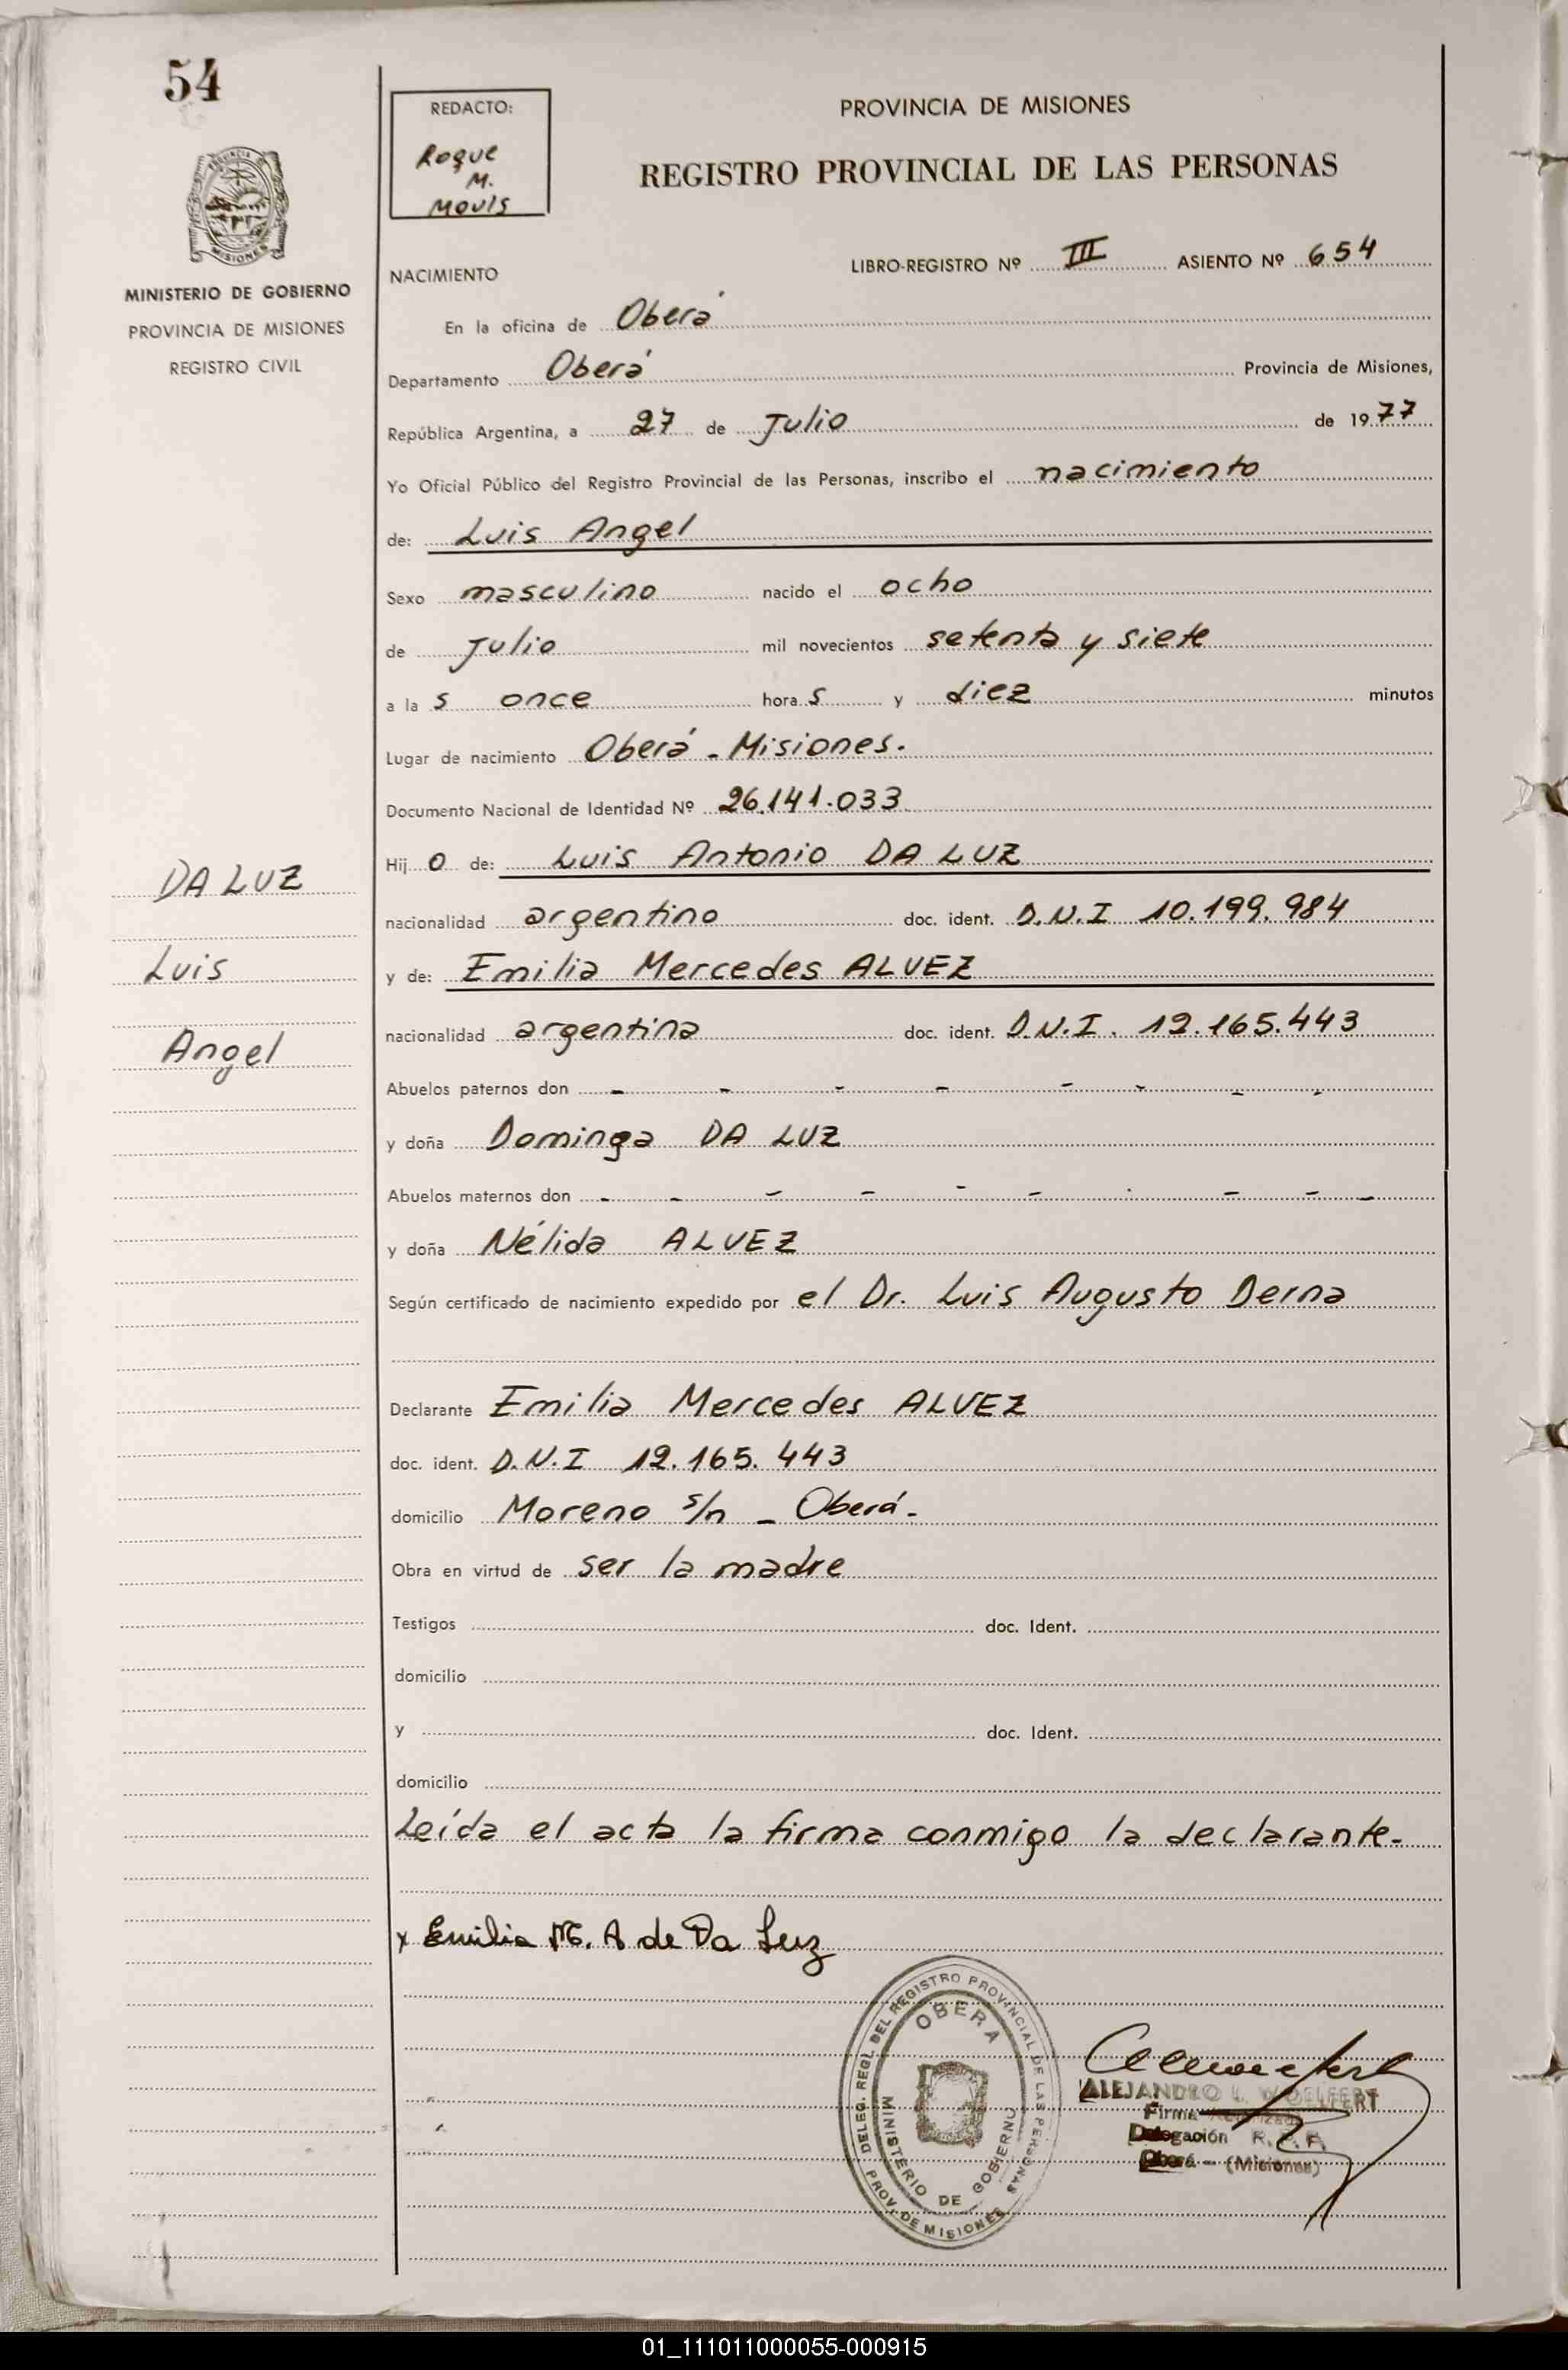 54
PROVINCIA DE
MISIONES
MINISTERIO DE GOBIERNO
PROVINCIA DE MISIONES
REGISTRO CIVIL
REDACTO:
Roque
M.
Movis
PROVINCIA DE MISIONES
REGISTRO PROVINCIAL DE LAS PERSONAS
NACIMIENTO
LIBRO-REGISTRO Nº III ASIENTO Nº 654
En la oficina de Oberá
Departamento Oberá Provincia de Misiones,
República Argentina, a 27 de Julio de 1977
Yo Oficial Público del Registro Provincial de las Personas, inscribo el nacimiento
de: Luis Angel
Sexo masculino nacido el ocho
de Julio mil novecientos setenta y siete
a la s once hora s y diez minutos
Lugar de nacimiento Oberá - Misiones.
Documento Nacional de Identidad Nº 26.141.033
Hij o de: Luis Antonio DA LUZ
nacionalidad argentino doc. ident. D.N.I 10.199.984
y de: Emilia Mercedes ALVEZ
nacionalidad argentina doc. ident. D.N.I. 12.165.443
Abuelos paternos don - - - - - - - -
y doña Dominga DA LUZ
Abuelos maternos don - - - - - - - - - -
y doña Nélida ALVEZ
Según certificado de nacimiento expedido por el Dr. Luis Augusto Derna
Declarante Emilia Mercedes ALVEZ
doc. ident. D.N.I 12.165.443
domicilio Moreno s/n - Oberá.
Obra en virtud de ser la madre
Testigos doc. Ident.
domicilio
y doc. Ident.
domicilio
Leída el acta la firma conmigo la declarante.
x Emilia M. A de Da Luz
DA LUZ
Luis
Angel
DELEG. REGL. DEL REGISTRO PROVINCIAL DE LAS PERSONAS
OBERA
MINISTERIO DE GOBIERNO
PROV. DE MISIONES
ALEJANDRO L. WOELFERT
Firma Autorizada
Delegación R. P. P.
Oberá - (Misiones)
01_111011000055-000915